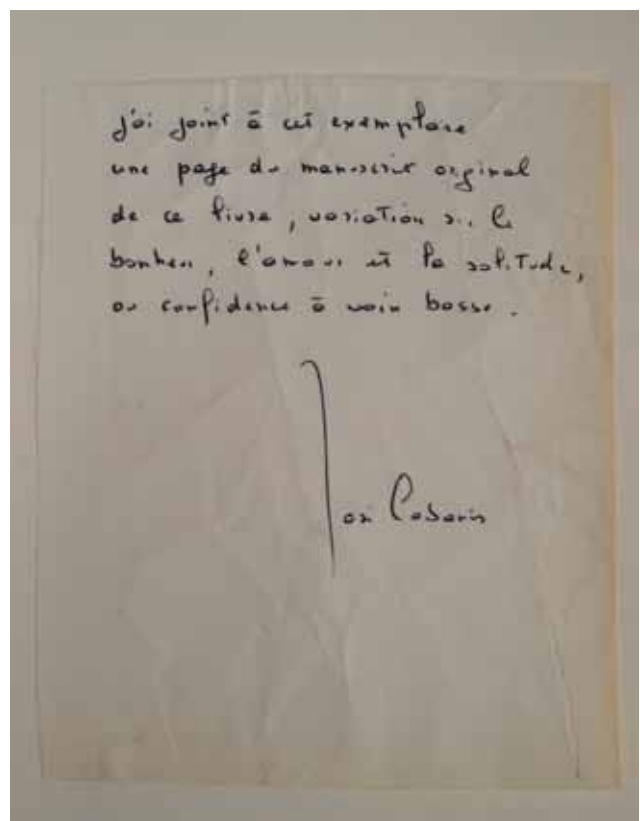 j'ai joint à cet exemplaire
une page du manuscrit original
de ce livre, variation sur le
bonheur, l'amour et la solitude,
ou confidence à voix basse.
José Cabanis